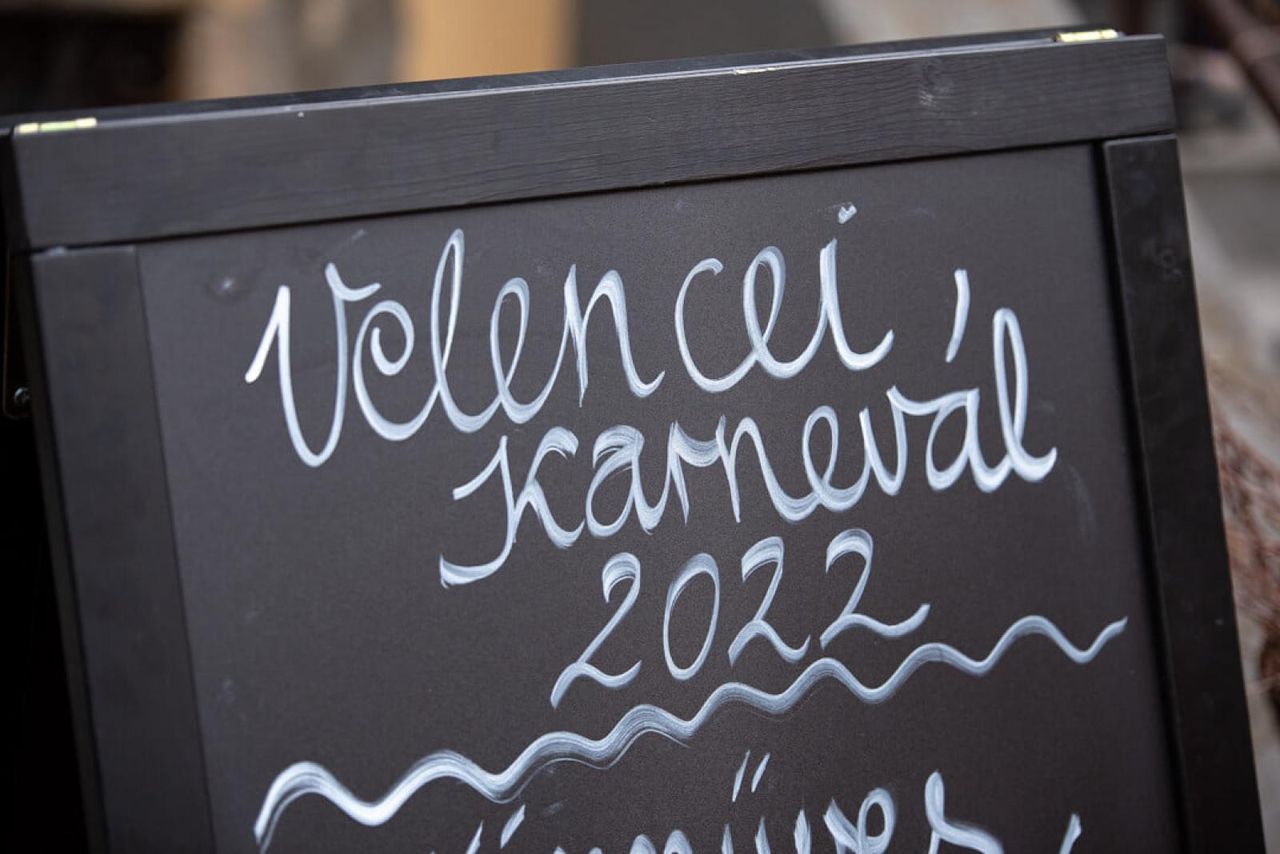 Velencei
karnevál
2022